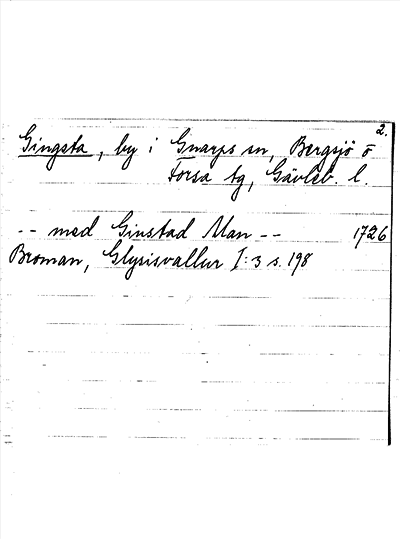 2.
Gingsta, by i Gnarps sn, Bergsjö o
Forsa tg, Gävleb. l.
-- med Ginstad Man -- 1726
Broman, Glysisvallur I:3 s. 198